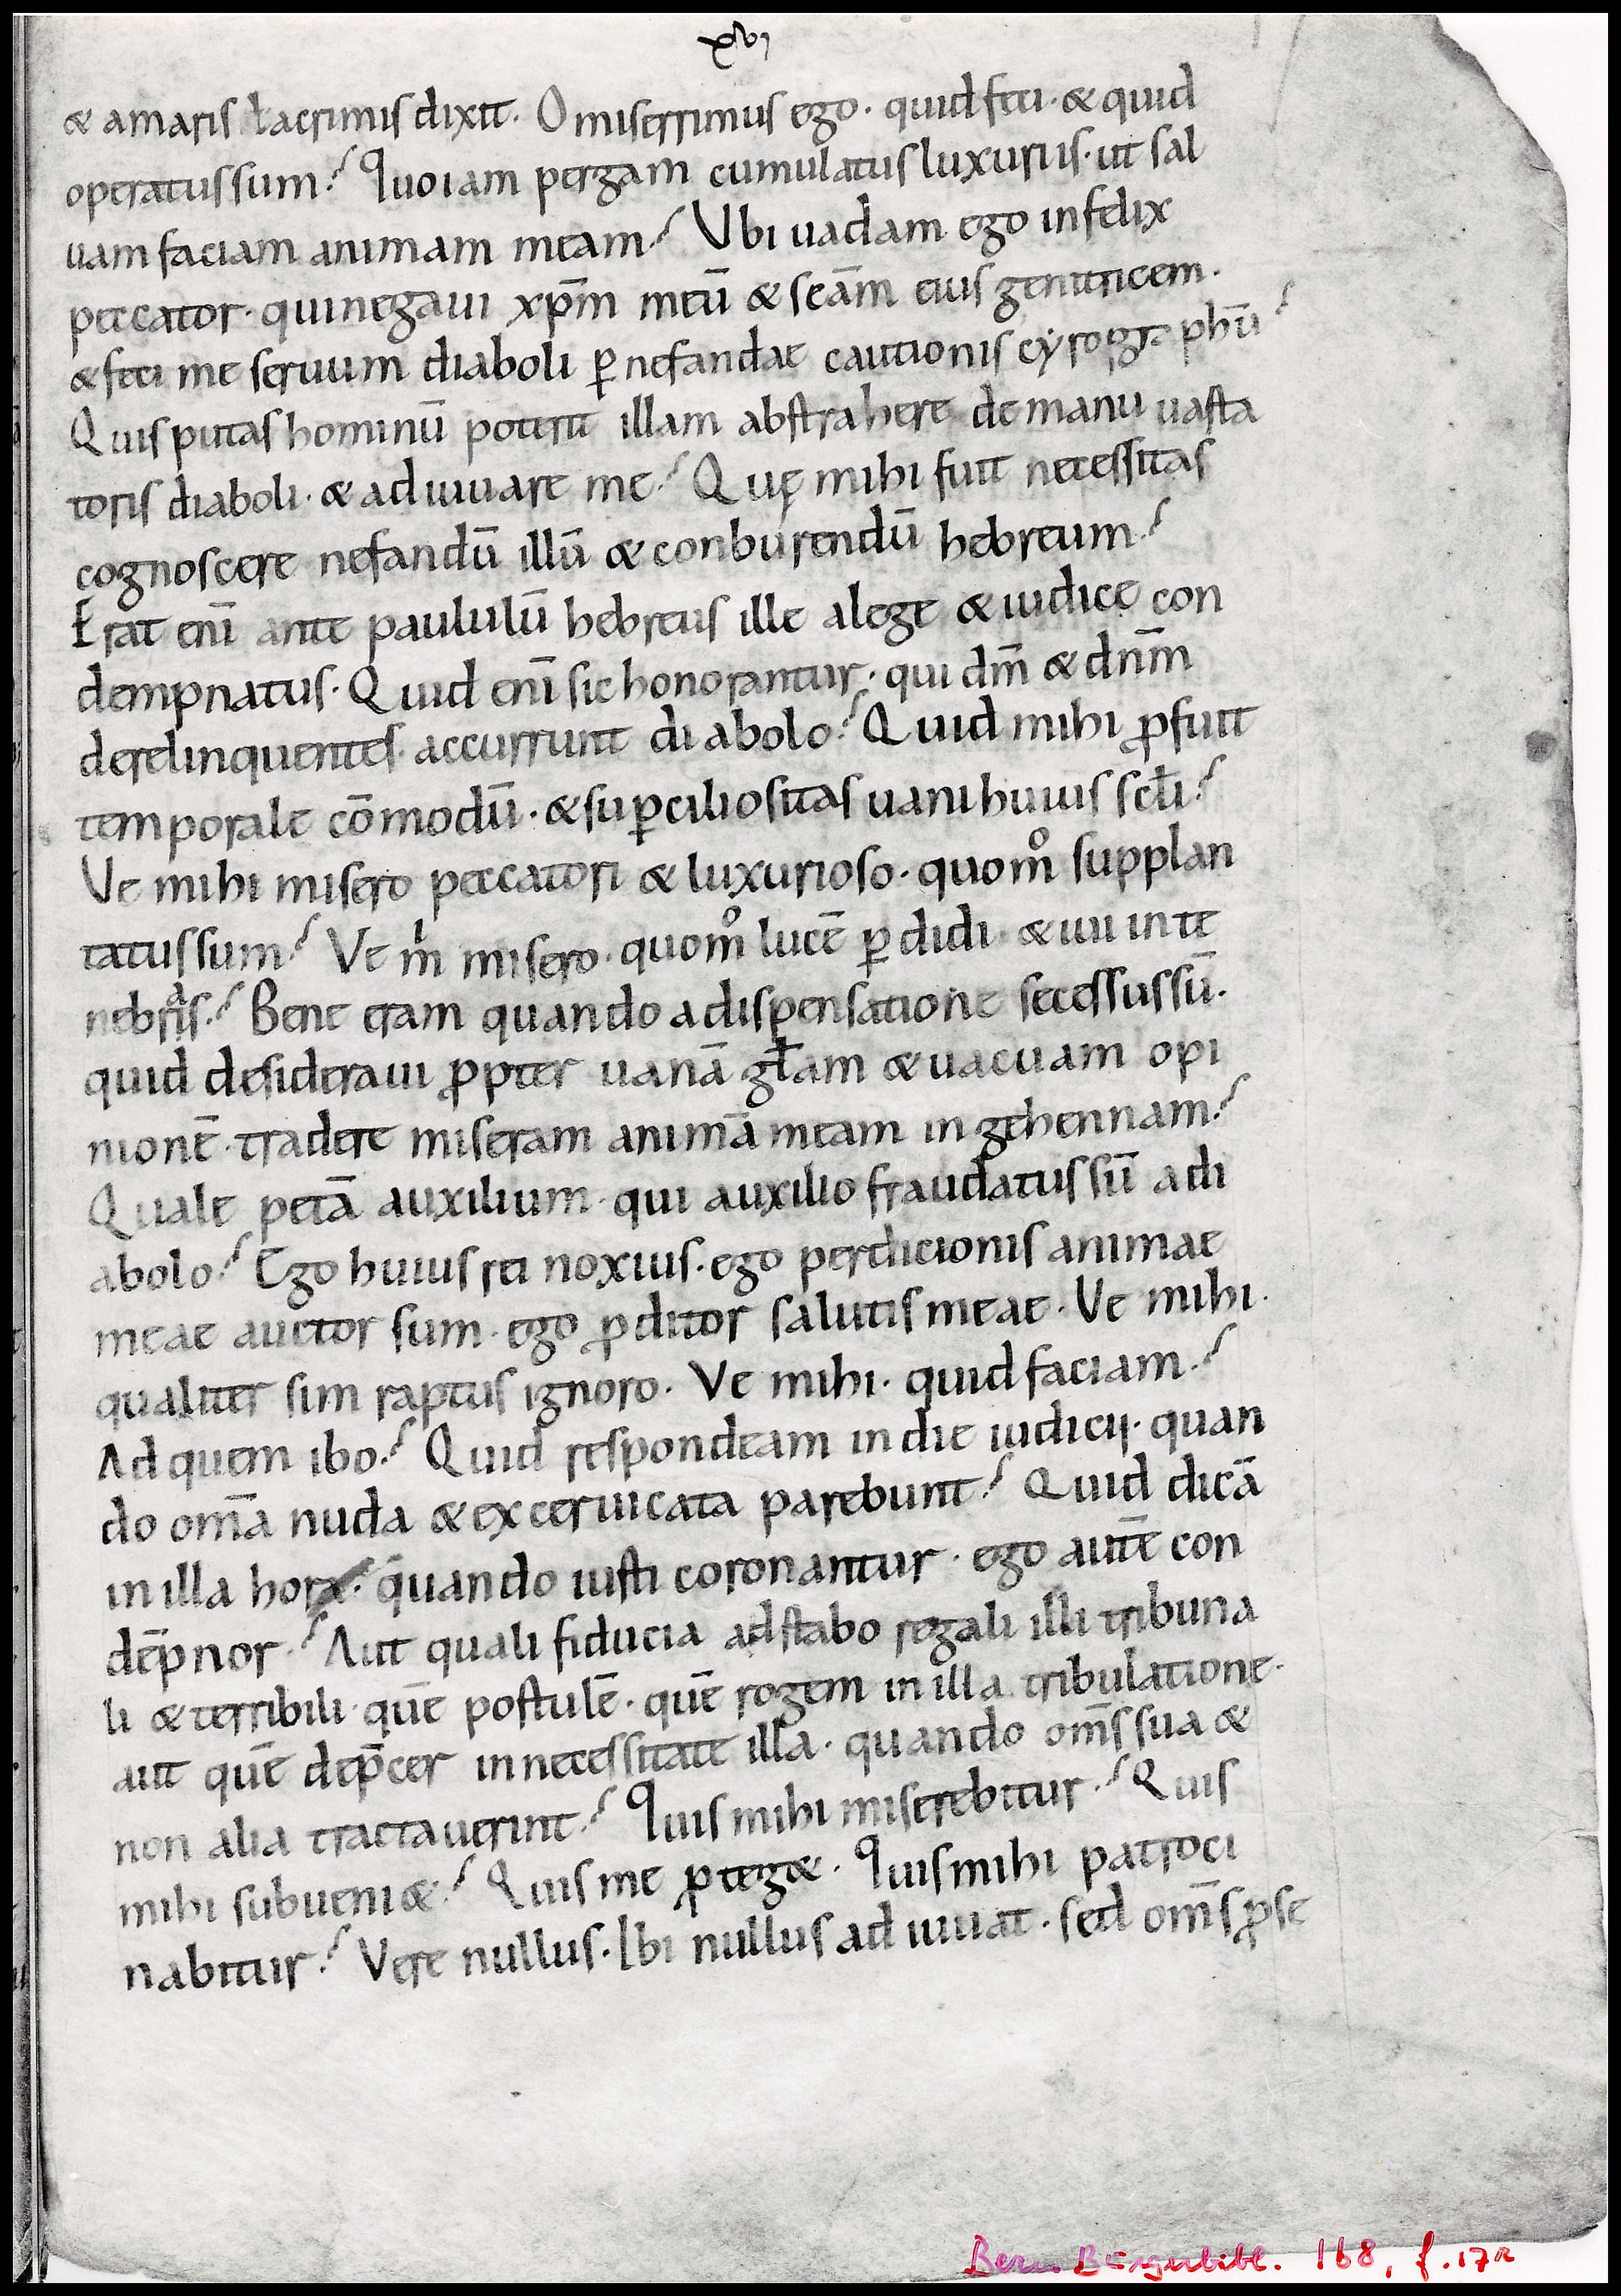 xvj
& amaris lacrimis dixit. O miserrimus ego. quid feci. & quid
operatus sum? Quo iam pergam cumulatus luxuriis. ut sal
uam faciam animam meam? Vbi uadam ego infelix
peccator. qui negaui xp̄m meū & scām eius genitricem.
& feci me seruum diaboli ꝑ nefandae cautionis cyrographū?
Quis putas hominū poterit illam abstrahere de manu uasta
toris diaboli. & adiuuare me? Quę mihi fuit necessitas
cognoscere nefandū illū & conburendū hebreum?
Erat enī ante paululū hebreus ille a lege & iudice con
dempnatus. Quid enī sic honorantur. qui dm̄ & dn̄m
derelinquentes. accurrunt diabolo? Quid mihi ꝓfuit
temporale cōmodū. & suꝑciliositas uani huius scłi?
Ve mihi misero peccatori & luxurioso. quomͦ supplan
tatus sum? Ve mͥ misero. quomͦ lucē ꝑdidi & iui in te
nebris? Bene eram quando a dispensatione secessus sū.
quid desideraui ꝓpter uanā głam & uacuam opi
nionē. tradere miseram animā meam in gehennam?
Quale petā auxilium. qui auxilio fraudatus sū a di
abolo? Ego huius rei noxius. ego perdicionis animae
meae auctor sum. ego ꝓditor salutis meae. Ve mihi.
qualiter sim raptus ignoro. Ve mihi. quid faciam?
Ad quem ibo? Quid respondeam in die iudicii. quan
do om̄a nuda & excervicata parebunt? Quid dicā
in illa hora. quando iusti coronantur. ego autē con
dēpnor? Aut quali fiducia adstabo regali illi tribuna
li & terribili. quē postulē. quē rogem in illa tribulatione.
aut quē dep̄cer in necessitate illa. quando om̄s sua &
non alia tractauerint? Quis mihi miserebitur? Quis
mihi subueni&? Quis me ꝓteg&. Quis mihi patroci
nabitur? Vere nullus. Ibi nullus adiuuat. sed om̄s ꝓ se
Bern Burgerbibl. 168, f. 17r